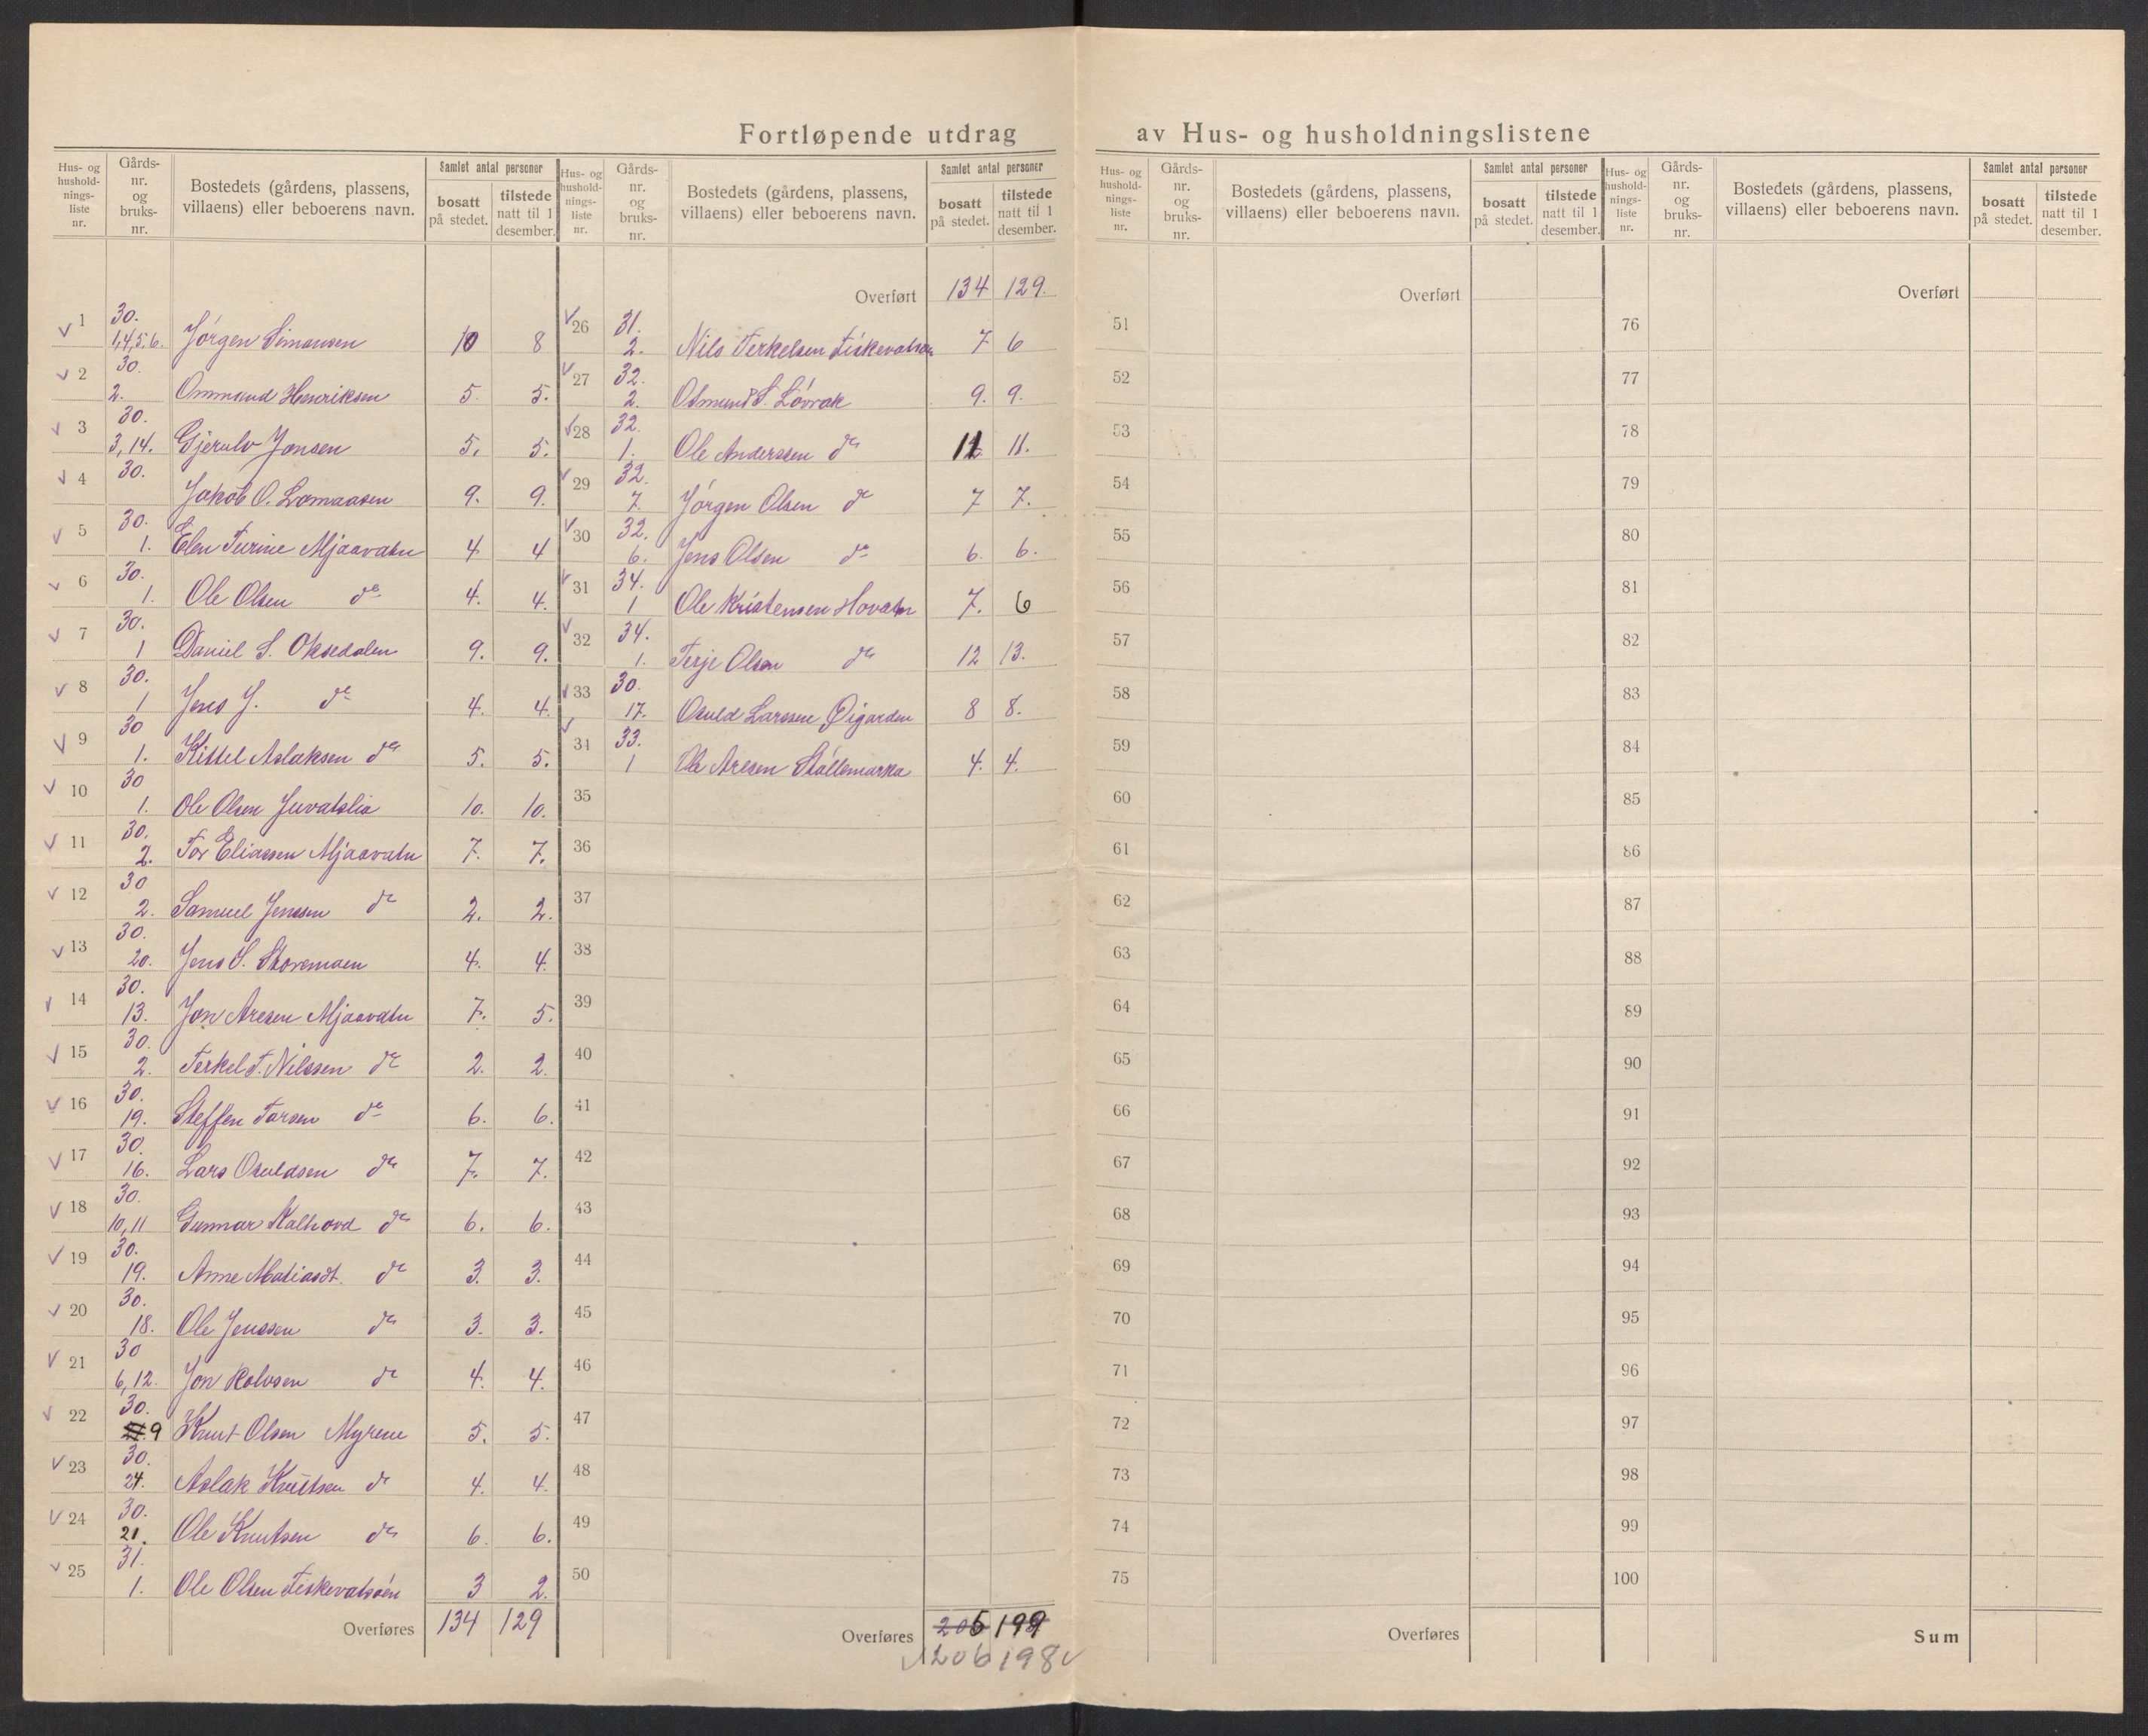 Fortløpende utdrag av Hus- og husholdningslistene
Hus- og husholdnings-liste nr. Gårds-nr. og bruks-nr. Bostedets (gårdens, plassens, villaens) eller beboerens navn. Samlet antal personer bosatt på stedet. tilstede natt til 1 desember.
1 30. 1,4,5,6. Jørgen Simonsen 10 8
2 30. 2. Ommund Henriksen 5. 5.
3 30. 3,14. Gjerulv Jonsen 5. 5.
4 30. Jakob O. Lomaasen 9. 9.
5 30. 1. Elen Turine Mjaavatn 4 4
6 30. 1. Ole Olsen do 4. 4.
7 30. 1 Daniel S. Oksedalen 9. 9.
8 30. 1 Jens J. do 4. 4.
9 30 1. Kittel Aslaksen do 5. 5.
10 30 1. Ole Olsen Juvatslia 10. 10.
11 30. 2. Tor Eliassen Mjaavatn 7. 7.
12 30 2. Samuel Jenssen do 2. 2.
13 30. 20. Jens S. Storemoen 4. 4.
14 30. 13. Jon Aresen Mjaavatn 7. 5.
15 30. 2. Terkel T. Nilssen do 2. 2.
16 30. 19. Steffen Torsen do 6. 6.
17 30. 16. Lars Osuldsen do 7. 7.
18 30. 10,11 Gunnar Kalhovd do 6. 6.
19 30. 19. Anne Matiasdt. do 3. 3.
20 30. 18. Ole Jenssen do 3. 3.
21 30 6,12. Jon Rolvsen do 4. 4.
22 30. 9 Knut Olsen Myrene 5. 5.
23 30. 24. Aslak Knutsen do 4. 4.
24 30. 21. Ole Knutsen do 6. 6.
25 31. 1. Ole Olsen Fiskevatsøen 3 2.
Overføres 134 129
Hus- og husholdnings-liste nr. Gårds-nr. og bruks-nr. Bostedets (gårdens, plassens, villaens) eller beboerens navn. Samlet antal personer bosatt på stedet. tilstede natt til 1 desember.
Overført 134 129.
26 31. 2. Nils Terkelsen Fiskevatsøen 7 6
27 32. 2. Osmund S. Løvrak 9. 9.
28 32. 1. Ole Anderssen do 11 11.
29 32. 7. Jørgen Olsen do 7 7.
30 32. 6. Jens Olsen do 6. 6.
31 34. 1 Ole Kristensen Hovatn 7. 6
32 34. 1. Terje Olsen do 12 13.
33 30. 17. Osuld Larssen Øigarden 8 8.
34 33. 1 Ole Aresen Stállemarka 4. 4.
35
36
37
38
39
40
41
42
43
44
45
46
47
48
49
50
Overføres 205 199
206 198
Hus- og husholdnings-liste nr. Gårds-nr. og bruks-nr. Bostedets (gårdens, plassens, villaens) eller beboerens navn. Samlet antal personer bosatt på stedet. tilstede natt til 1 desember.
Overført
51
52
53
54
55
56
57
58
59
60
61
62
63
64
65
66
67
68
69
70
71
72
73
74
75
Overføres
Hus- og husholdnings-liste nr. Gårds-nr. og bruks-nr. Bostedets (gårdens, plassens, villaens) eller beboerens navn. Samlet antal personer bosatt på stedet. tilstede natt til 1 desember.
Overført
76
77
78
79
80
81
82
83
84
85
86
87
88
89
90
91
92
93
94
95
96
97
98
99
100
Sum